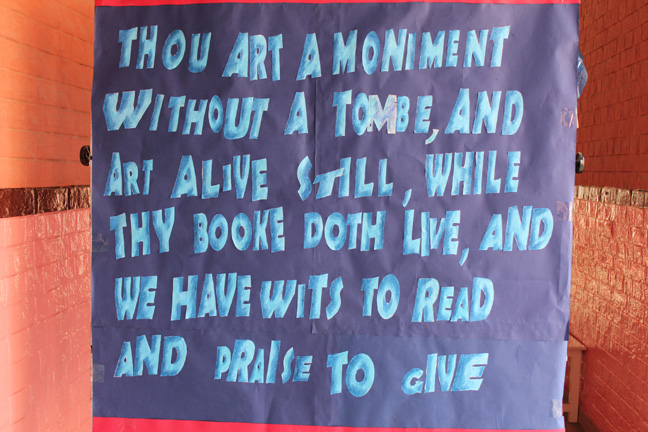 THOU ART A MONIMENT
WITHOUT A TOMBE, AND
ART ALIVE STILL, WHILE
THY BOOKE DOTH LIVE, AND
WE HAVE WITS TO READ
AND PRAISE TO GIVE